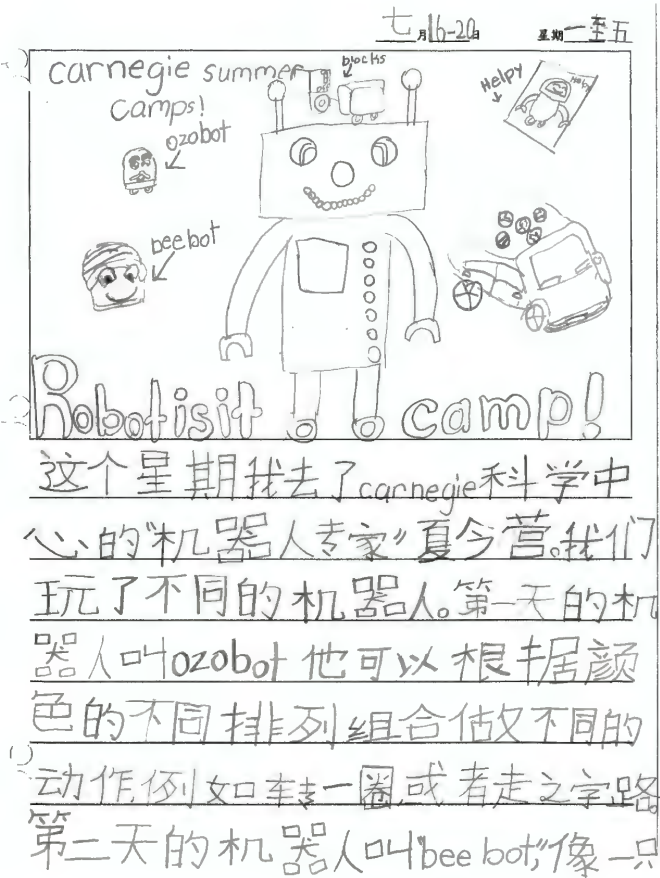 七月16-20日 星期一至五
carnegie summer
camps!
blocks
Helpy
Helpy
ozobot
beebot
Robotisit camp!
这个星期我去了carnegie科学中
心的"机器人专家"夏令营。我们
玩了不同的机器人。第一天的机
器人叫ozobot 他可以根据颜
色的不同排列组合做不同的
动作,例如转一圈或者走之字路。
第二天的机器人叫"bee bot,"像一只